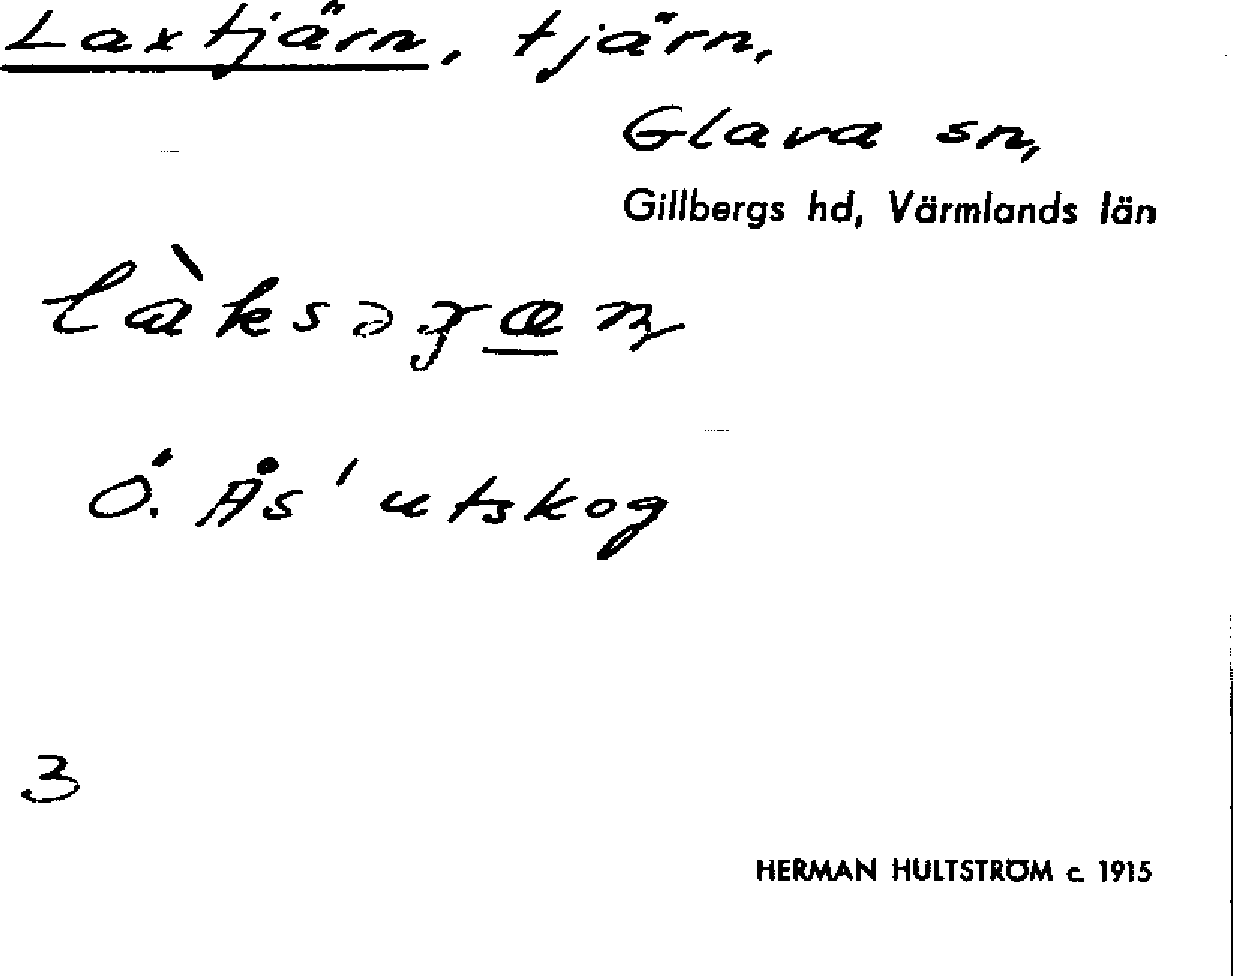 Laxtjärn, tjärn,
Glava sn,
Gillbergs hd, Värmlands län
Ö. Ås' utskog
3
HERMAN HULTSTRÖM c. 1915